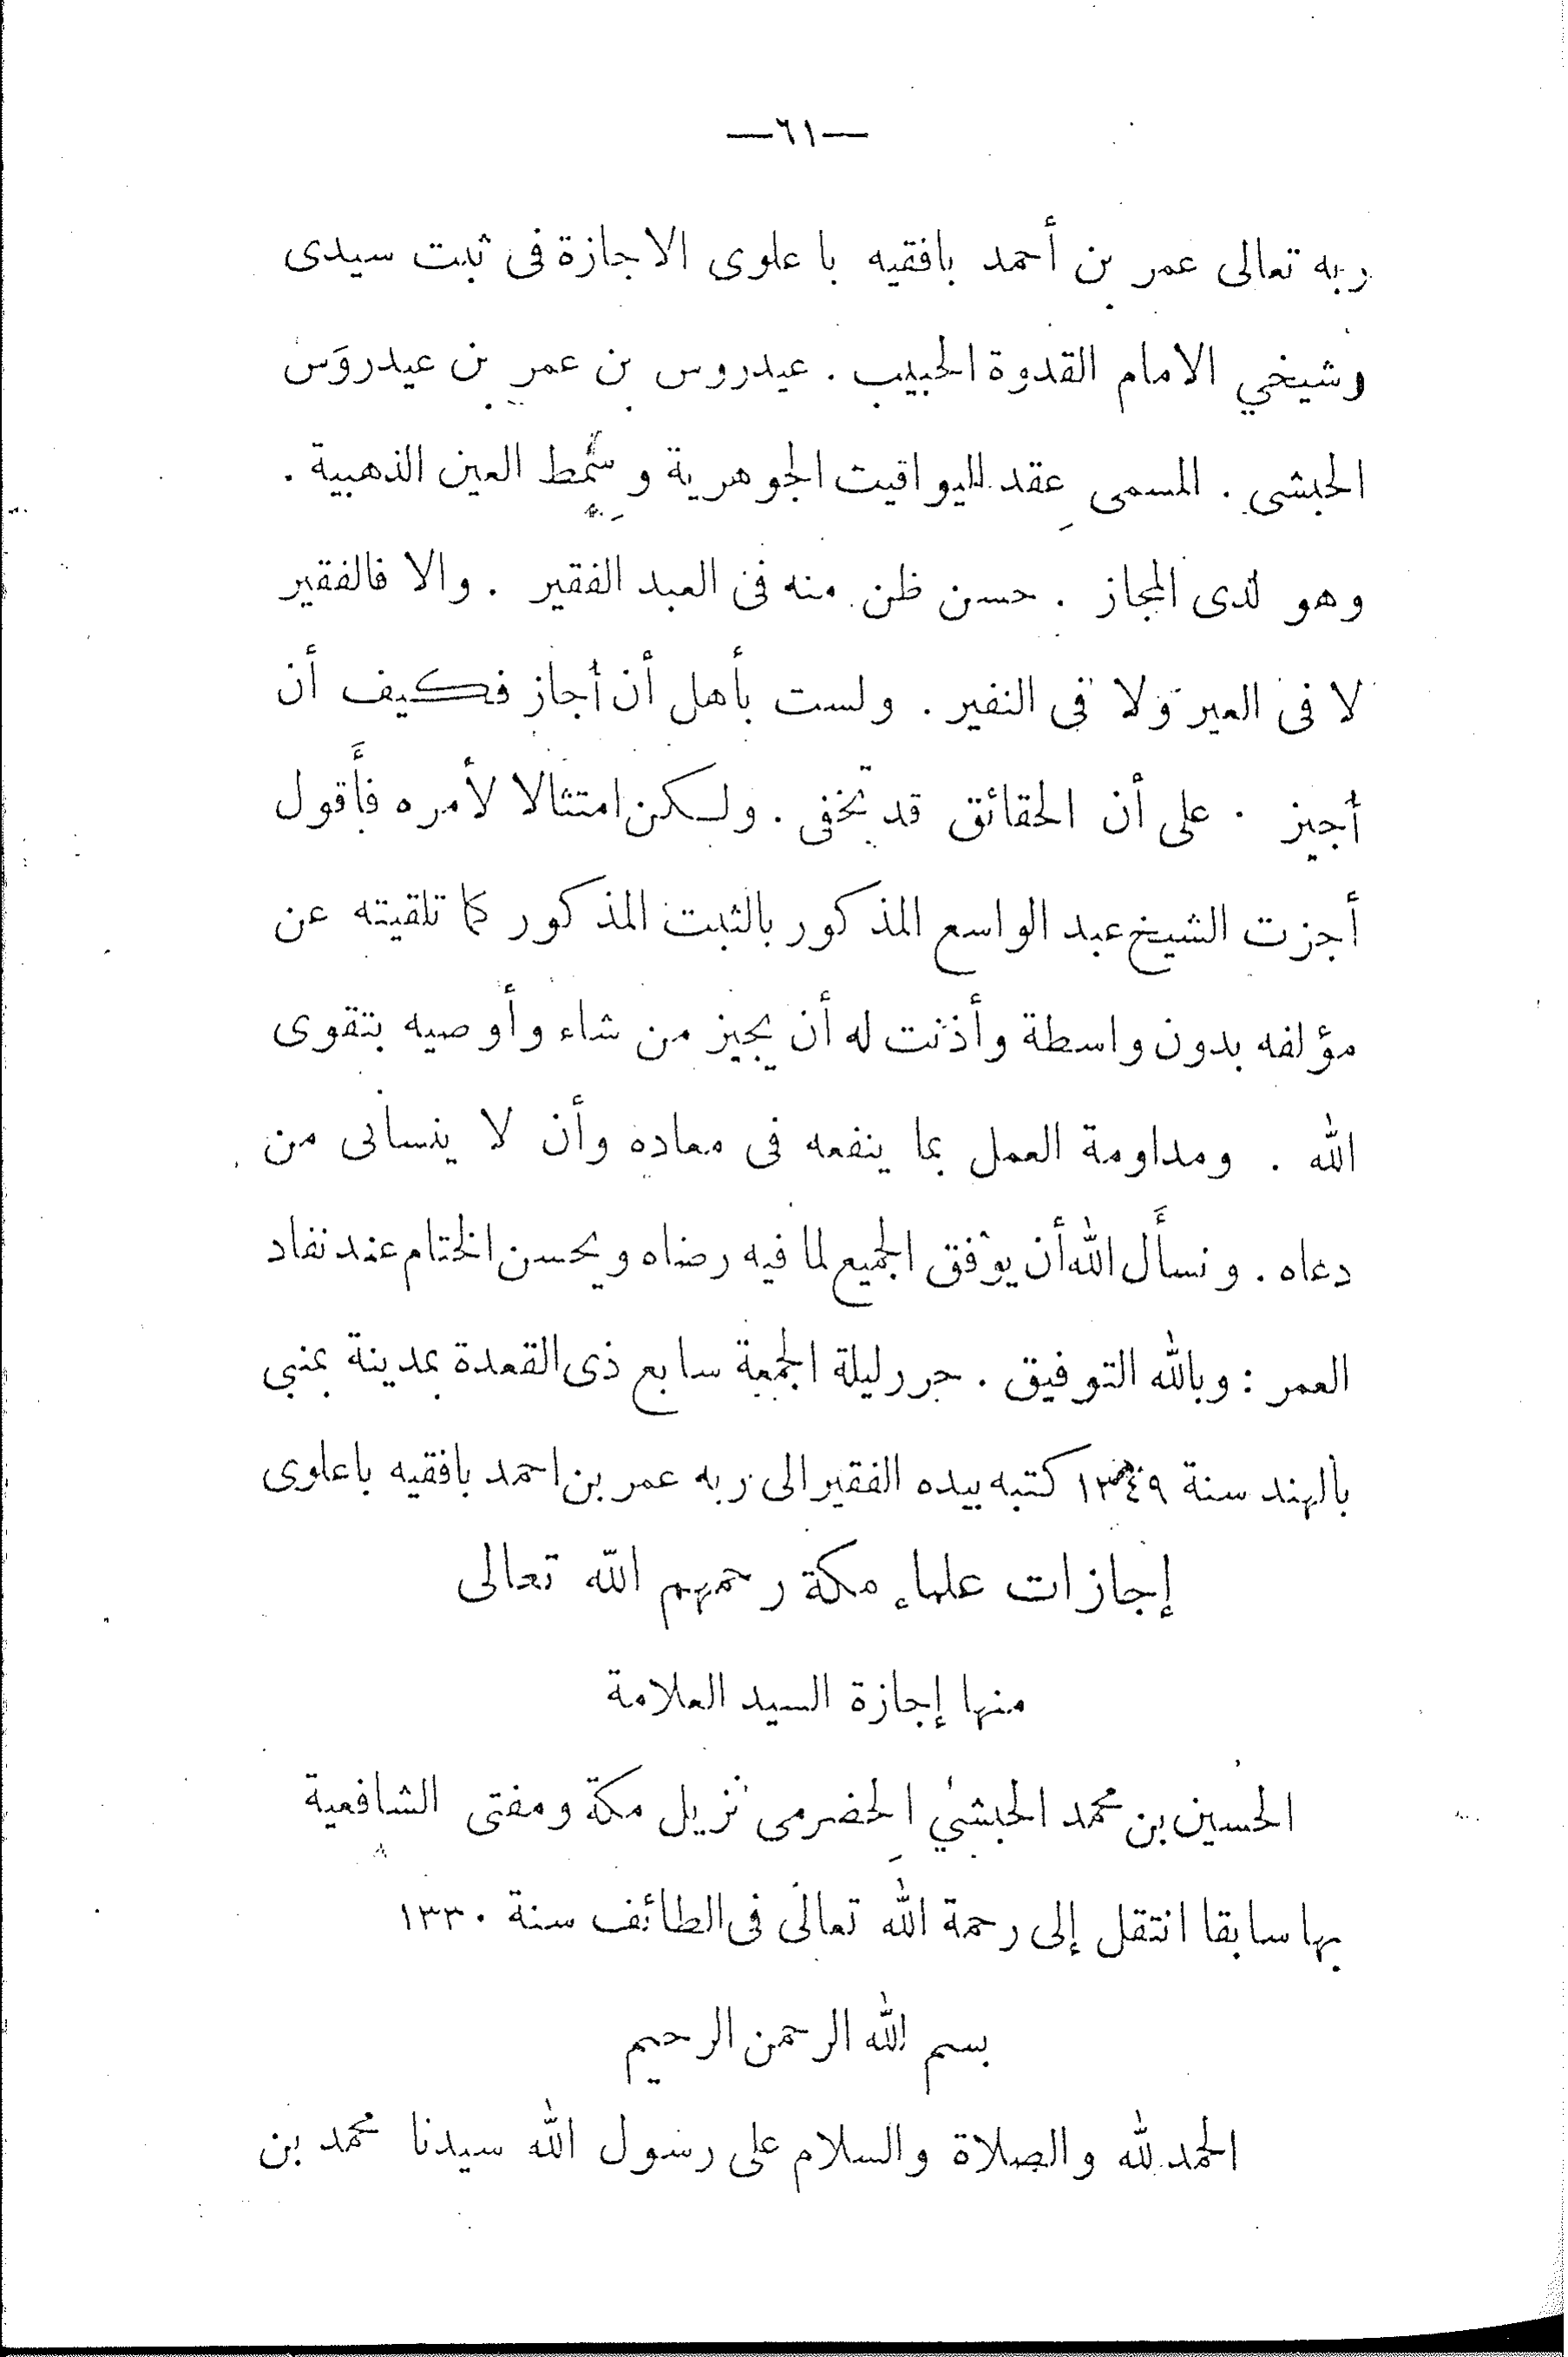 —٦١—
ربه تعالى عمر بن أحمد بافقيه با علوى الاجازة فى ثبت سيدى
وشيخي الامام القدوة الحبيب . عيدروس بن عمر بن عيدروس
الحبشى . المسمى عقد اليواقيت الجوهرية وسمط العين الذهبية .
وهو لدى المجاز . حسن ظن منه فى العبد الفقير . والا فالفقير
لا فى العير ولا فى النفير . ولست بأهل أن أجاز فكيف أن
أجيز . على أن الحقائق قد تخفى . ولكن امتثالا لأمره فأقول
أجزت الشيخ عبد الواسع المذكور بالثبت المذكور كما تلقيته عن
مؤلفه بدون واسطة وأذنت له أن يجيز من شاء وأوصيه بتقوى
الله . ومداومة العمل بما ينفعه فى معاده وأن لا ينسانى من
دعاه . ونسأل الله أن يوفق الجميع لما فيه رضاه ويحسن الختام عند نفاد
العمر : وبالله التوفيق . حرر ليلة الجمعة سابع ذى القعدة بمدينة بمنبى
بالهند سنة ١٣٤٩ كتبه بيده الفقير الى ربه عمر بن احمد بافقيه باعلوى
إجازات علماء مكة رحمهم الله تعالى
منها إجازة السيد العلامة
الحسين بن محمد الحبشي الحضرمى نزيل مكة ومفتى الشافعية
بها سابقا انتقل إلى رحمة الله تعالى فى الطائف سنة ١٣٣٠
بسم الله الرحمن الرحيم
الحمد لله والصلاة والسلام على رسول الله سيدنا محمد بن